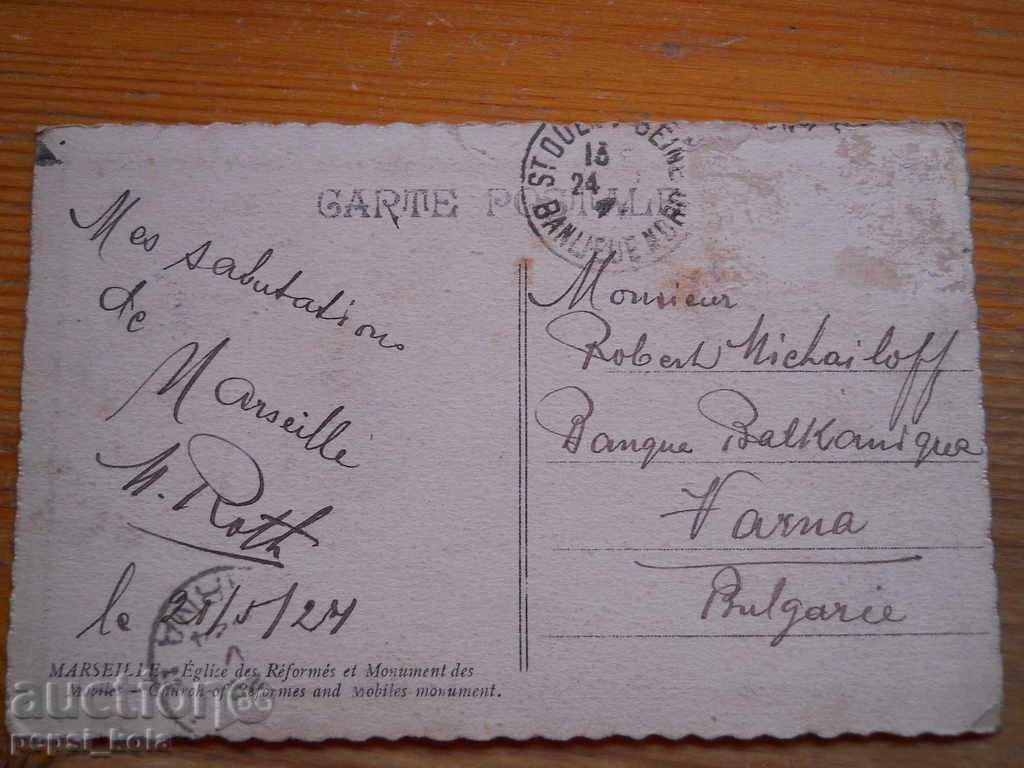 CARTE POSTALE
ST OUEN SEINE
13
24
BANLIEUE NORD
Mes salutations
de
Marseille
M. Roth
le 21/5/27
Monsieur
Robert Michailoff
Banque Balkanique
Varna
Bulgarie
MARSEILLE - Église des Réformés et Monument des
Mobiles - Church of Reformes and Mobiles monument.
auction
pepsi_kola